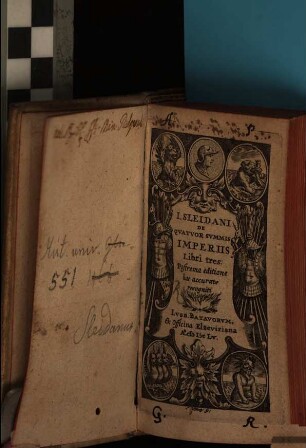 Hist. univ.
551
Sleidanus
A. P.
I. SLEIDANI
DE
QVATVOR SVMMIS
IMPERIIS,
Libri tres:
Postrema editione
hac accurate
recogniti
LVGD. BATAVORVM,
Ex Officina Elzeviriana
G. R.